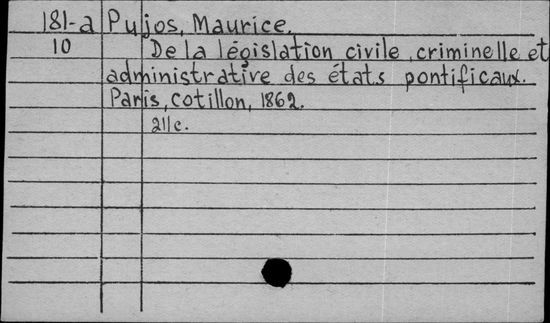 181-a Pujos, Maurice.
10 De la législation civile, criminelle et
administrative des états pontificaux.
Paris, Cotillon, 1862.
211c.